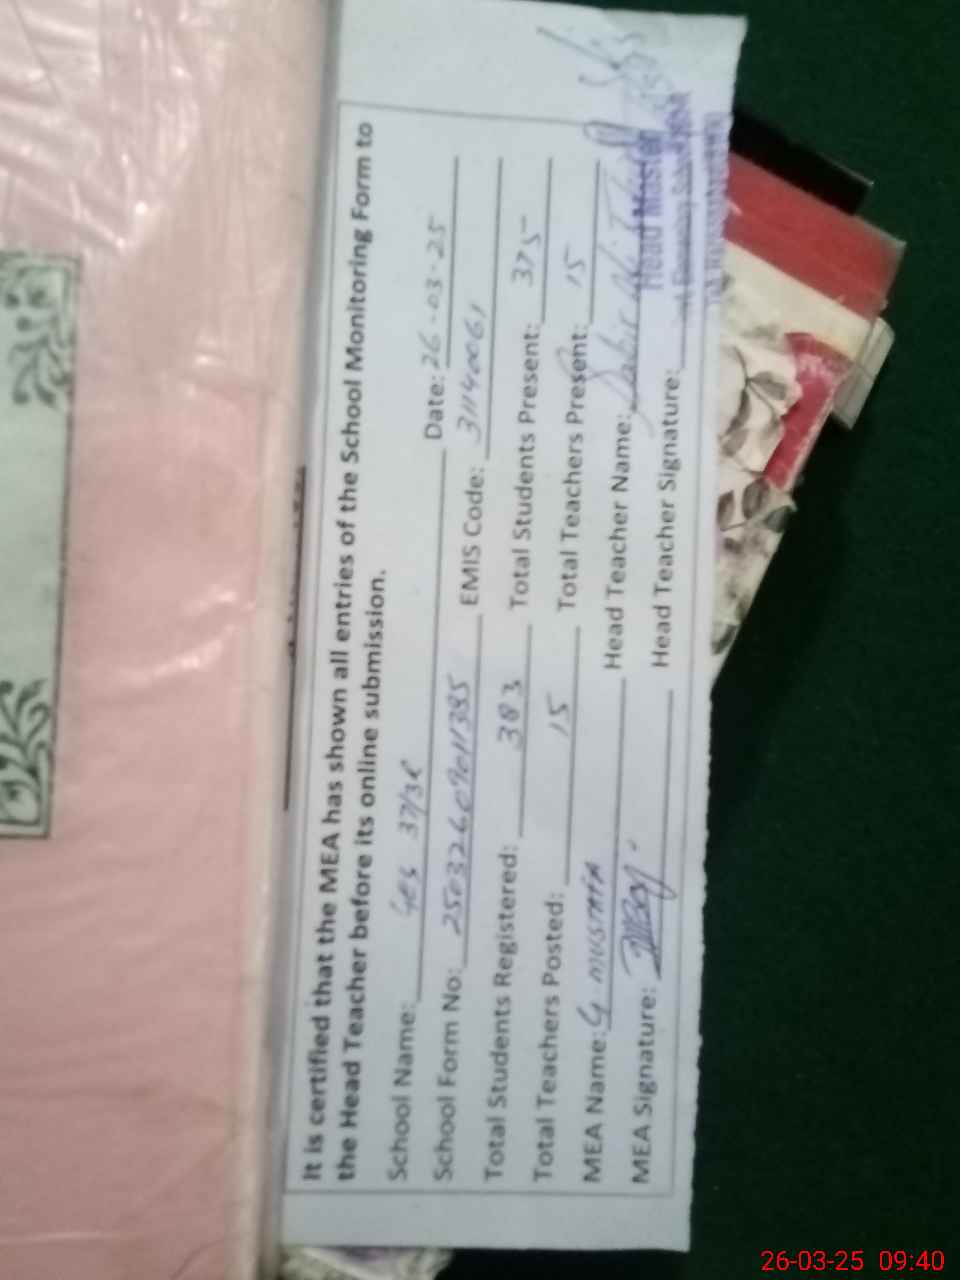 It is certified that the MEA has shown all entries of the School Monitoring Form to
the Head Teacher before its online submission.
School Name: GES 37/3R Date: 26-03-25
School Form No: 2503260909011395 EMIS Code: 31140061
Total Students Registered: 383 Total Students Present: 375
Total Teachers Posted: 15 Total Teachers Present: 15
MEA Name: G. MUSTAFA Head Teacher Name:
MEA Signature: Head Teacher Signature:
Head Master
26-03-25 09:40